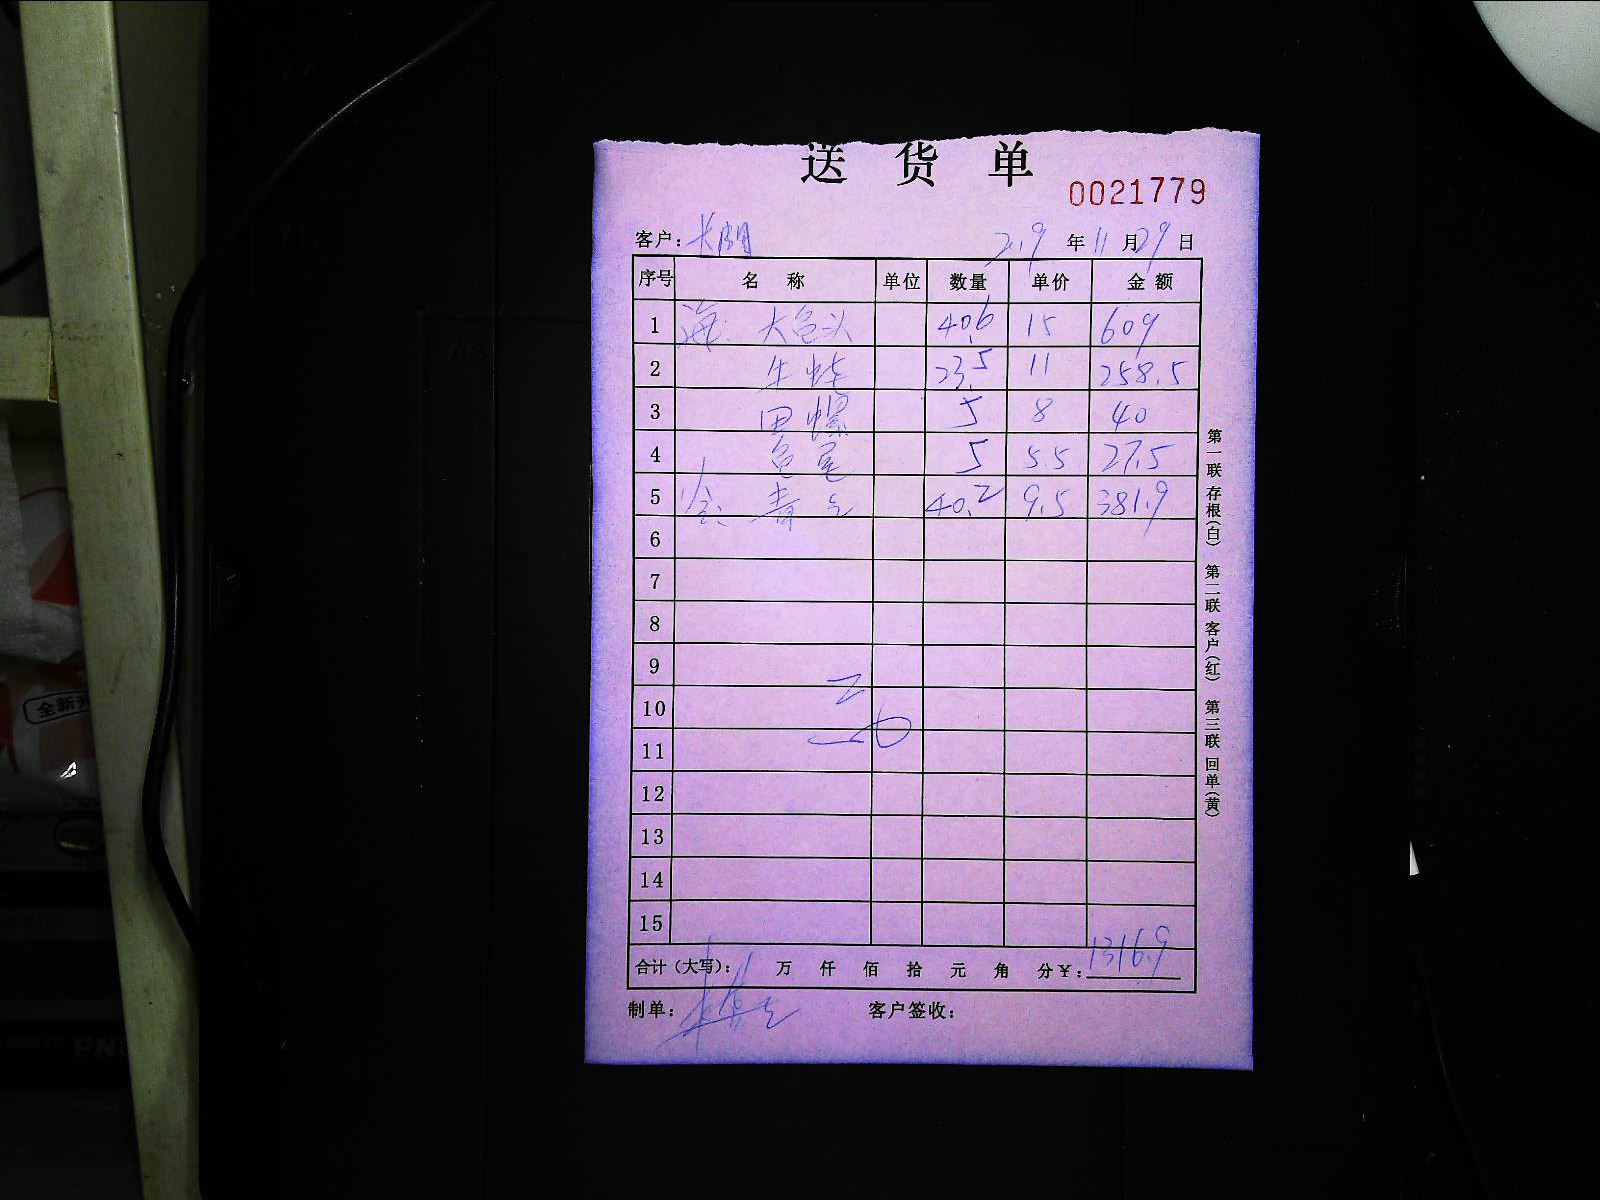 送 货 单
0021779
客户: 长朗 2.19 年 11 月 29 日
序号 名 称 单位 数量 单价 金 额
1 海: 大鱼头 40.6 15 609
2 牛蛙 23.5 11 258.5
3 田螺 5 8 40
4 鱼尾 5 5.5 27.5
5 40.2 9.5 381.9
6
7
8
9
10
11
12
13
14
15
合计(大写): 万 仟 佰 拾 元 角 分 ¥: 1316.9
制单: 客户签收:
第一联 存根(白) 第二联 客户(红) 第三联 回单(黄)
全新